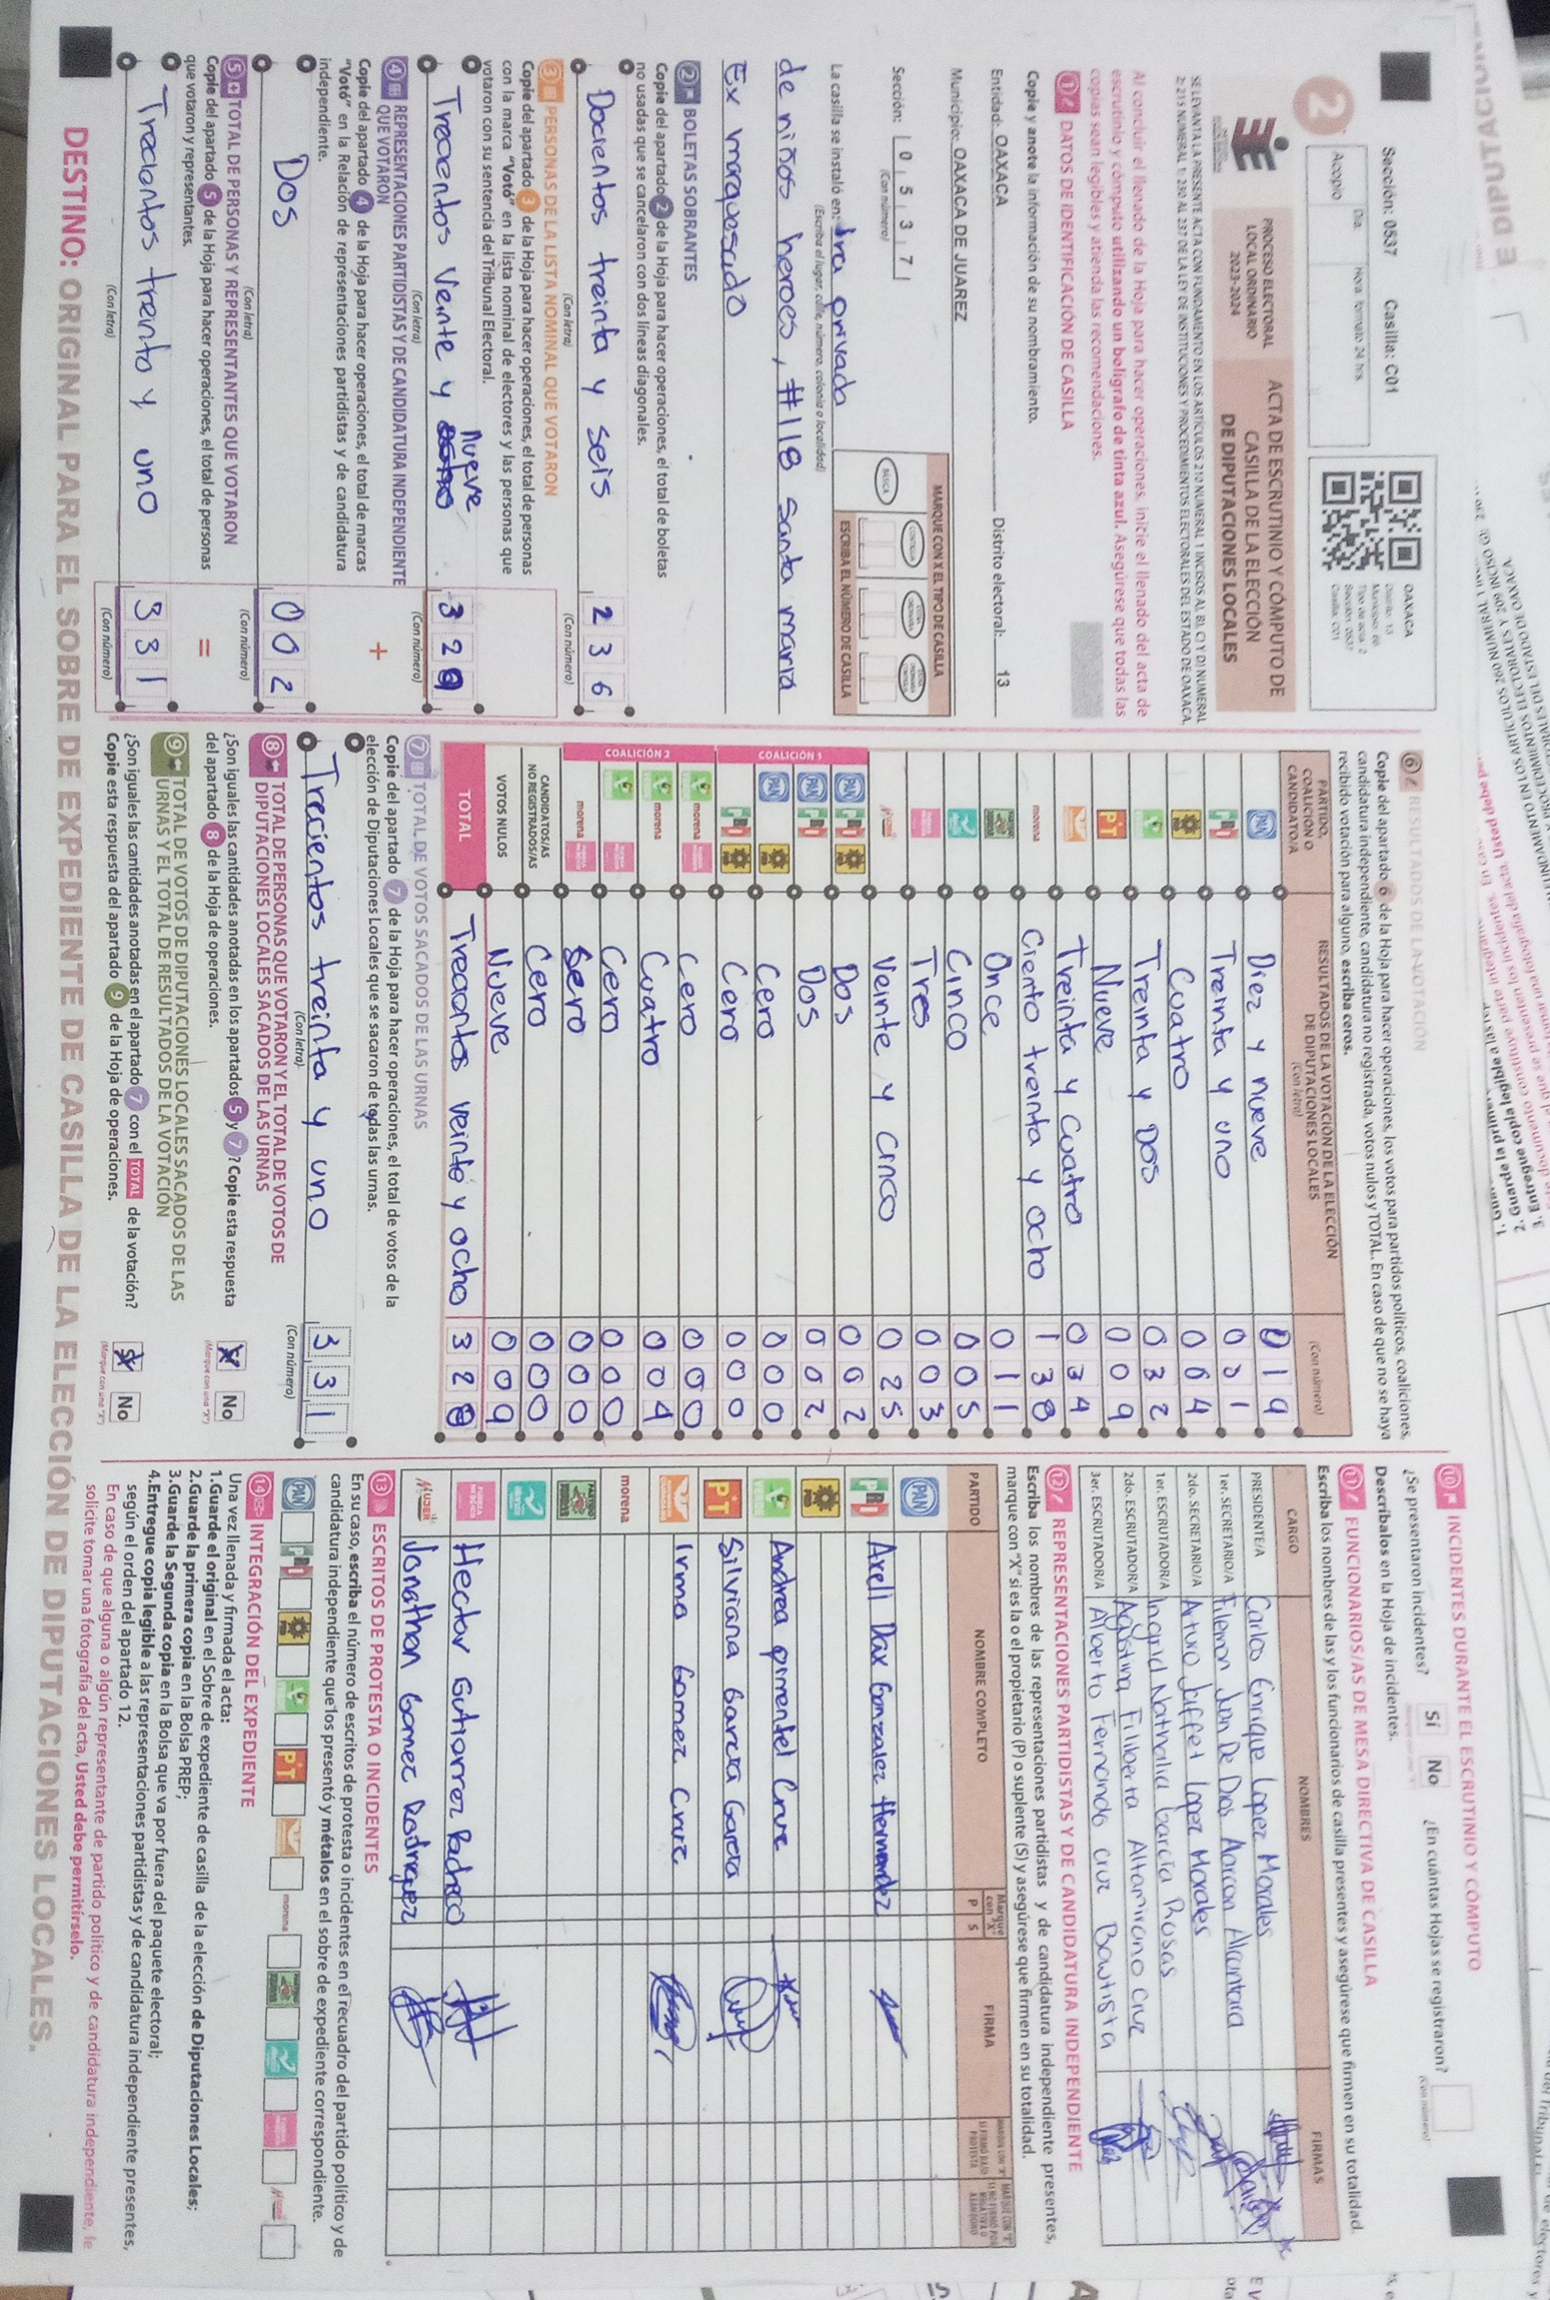 Sección: 0537 Casilla: C01
2
Acopio Día: Hora formato 24 hrs.
PROCESO ELECTORAL
LOCAL ORDINARIO
2023-2024
ACTA DE ESCRUTINIO Y CÓMPUTO DE
CASILLA DE LA ELECCIÓN
DE DIPUTACIONES LOCALES
OAXACA
Distrito: 13
Tipo de acta: 2
Sección: 0537
Casilla: C01
SE LEVANTA LA PRESENTE ACTA CON FUNDAMENTO EN LOS ARTÍCULOS
DE LA LEY DE INSTITUCIONES Y PROCEDIMIENTOS ELECTORALES DEL ESTADO DE OAXACA.
Al concluir el llenado de la Hoja para hacer operaciones, inicie el llenado del acta de
escrutinio y cómputo utilizando un bolígrafo de tinta azul. Asegúrese que todas las
copias sean legibles y atienda las recomendaciones.
1 DATOS DE IDENTIFICACIÓN DE CASILLA
Copie y anote la información de su nombramiento.
Entidad: OAXACA Distrito electoral: 13
Municipio: OAXACA DE JUAREZ
Sección: 0 5 3 7
(Con número)
MARQUE CON X EL TIPO DE CASILLA
BÁSICA
ESCRIBA EL NÚMERO DE CASILLA
La casilla se instaló en: 1ra privada
(Escriba el lugar, calle, número, colonia o localidad)
de niños heroes, #118 Santa maria
Ex marquesado
2 BOLETAS SOBRANTES
Copie del apartado 2 de la Hoja para hacer operaciones, el total de boletas
no usadas que se cancelaron con dos líneas diagonales.
Docientos treinta y seis 2 3 6
(Con letra) (Con número)
3 PERSONAS DE LA LISTA NOMINAL QUE VOTARON
Copie del apartado 3 de la Hoja para hacer operaciones, el total de personas
con la marca "Votó" en la lista nominal de electores y las personas que
votaron con su sentencia del Tribunal Electoral.
nueve
Trecentos Veinte y 3 2 9
(Con letra) (Con número)
4 REPRESENTACIONES PARTIDISTAS Y DE CANDIDATURA INDEPENDIENTE
QUE VOTARON
Copie del apartado 4 de la Hoja para hacer operaciones, el total de marcas
"Votó" en la Relación de representaciones partidistas y de candidatura
independiente.
+
Dos 0 0 2
(Con letra) (Con número)
5 TOTAL DE PERSONAS Y REPRESENTANTES QUE VOTARON
Copie del apartado 5 de la Hoja para hacer operaciones, el total de personas
que votaron y representantes.
=
Trecientos treinta y uno 3 3 1
(Con letra) (Con número)
6 RESULTADOS DE LA VOTACIÓN
Copie del apartado 6 de la Hoja para hacer operaciones, los votos para partidos políticos, coaliciones,
candidatura independiente, candidatura no registrada, votos nulos y TOTAL. En caso de que no se haya
recibido votación para alguno, escriba ceros.
PARTIDO, COALICIÓN O CANDIDATO/A
RESULTADOS DE LA VOTACIÓN DE LA ELECCIÓN DE DIPUTACIONES LOCALES
(Con letra) (Con número)
PAN Diez y nueve 0 1 9
PRI Treinta y uno 0 3 1
Cuatro 0 0 4
Treinta y Dos 0 3 2
PT Nueve 0 0 9
Treinta y Cuatro 0 3 4
morena Ciento treinta y ocho 1 3 8
Once 0 1 1
Cinco 0 0 5
Tres 0 0 3
MUJER Veinte y cinco 0 2 5
COALICIÓN 1
PAN PRI Dos 0 0 2
PAN PRI Dos 0 0 2
PAN Cero 0 0 0
PRI Cero 0 0 0
COALICIÓN 2
morena Cero 0 0 0
morena Cuatro 0 0 4
Cero 0 0 0
morena Sero 0 0 0
CANDIDATOS/AS NO REGISTRADOS/AS Cero 0 0 0
VOTOS NULOS Nueve 0 0 9
TOTAL Trecentos veinte y ocho 3 2 8
7 TOTAL DE VOTOS SACADOS DE LAS URNAS
Copie del apartado 7 de la Hoja para hacer operaciones, el total de votos de la
elección de Diputaciones Locales que se sacaron de todas las urnas.
Trecientos treinta y uno 3 3 1
(Con letra) (Con número)
8 TOTAL DE PERSONAS QUE VOTARON Y EL TOTAL DE VOTOS DE
DIPUTACIONES LOCALES SACADOS DE LAS URNAS
¿Son iguales las cantidades anotadas en los apartados 5 y 7? Copie esta respuesta
del apartado 8 de la Hoja de operaciones.
Sí No
(Marque con una "X")
9 TOTAL DE VOTOS DE DIPUTACIONES LOCALES SACADOS DE LAS
URNAS Y EL TOTAL DE RESULTADOS DE LA VOTACIÓN
¿Son iguales las cantidades anotadas en el apartado 7 con el TOTAL de la votación?
Copie esta respuesta del apartado 9 de la Hoja de operaciones.
Sí No
(Marque con una "X")
10 INCIDENTES DURANTE EL ESCRUTINIO Y CÓMPUTO
¿Se presentaron incidentes? Sí No ¿En cuántas Hojas se registraron?
(Con número)
Descríbalos en la Hoja de incidentes.
11 FUNCIONARIOS/AS DE MESA DIRECTIVA DE CASILLA
Escriba los nombres de las y los funcionarios de casilla presentes y asegúrese que firmen en su totalidad.
CARGO NOMBRES FIRMAS
PRESIDENTE/A Carlos Enrique Lopez Morales
1er. SECRETARIO/A Filemon Juan De Dios Alarcon Alcantara
2do. SECRETARIO/A Arturo Juffet Lopez Morales
1er. ESCRUTADOR/A Ingrid Nathalia Garcia Rosas
2do. ESCRUTADOR/A Agustina Filiberta Altamirano Cruz
3er. ESCRUTADOR/A Alberto Fernando Cruz Bautista
12 REPRESENTACIONES PARTIDISTAS Y DE CANDIDATURA INDEPENDIENTE
Escriba los nombres de las representaciones partidistas y de candidatura independiente presentes,
marque con "X" si es la o el propietario (P) o suplente (S) y asegúrese que firmen en su totalidad.
PARTIDO NOMBRE COMPLETO Marque con "X" P S FIRMA
PAN
PRI Axell Dax Gonzalez Hernandez
Andrea pimentel Cruz
PT Silviana Garcia Garcia
Irma Gomez Cruz
morena
Hector Gutierrez Pacheco
MUJER Jonathan Gomez Rodriguez
13 ESCRITOS DE PROTESTA O INCIDENTES
En su caso, escriba el número de escritos de protesta o incidentes en el recuadro del partido político y de
candidatura independiente que los presentó y métalos en el sobre de expediente correspondiente.
PAN PRI PT morena
14 INTEGRACIÓN DEL EXPEDIENTE
Una vez llenada y firmada el acta:
1.Guarde el original en el Sobre de expediente de casilla de la elección de Diputaciones Locales;
2.Guarde la primera copia en la Bolsa PREP;
3.Guarde la Segunda copia en la Bolsa que va por fuera del paquete electoral;
4.Entregue copia legible a las representaciones partidistas y de candidatura independiente presentes,
según el orden del apartado 12.
En caso de que alguna o algún representante de partido político y de candidatura independiente, le
solicite tomar una fotografía del acta, Usted debe permitírselo.
DESTINO: ORIGINAL PARA EL SOBRE DE EXPEDIENTE DE CASILLA DE LA ELECCIÓN DE DIPUTACIONES LOCALES.